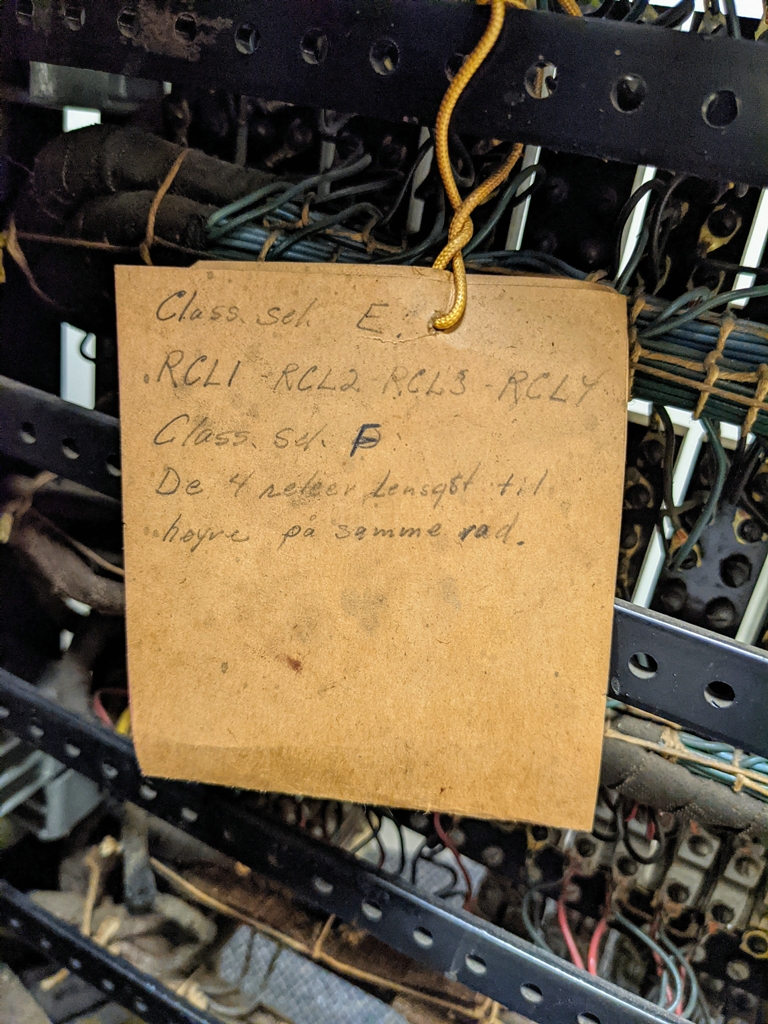 Class. sel. E.
RCL1 - RCL2 RCL3 - RCL4
Class. sel. F
De 4 releer lengst til
høyre på samme rad.